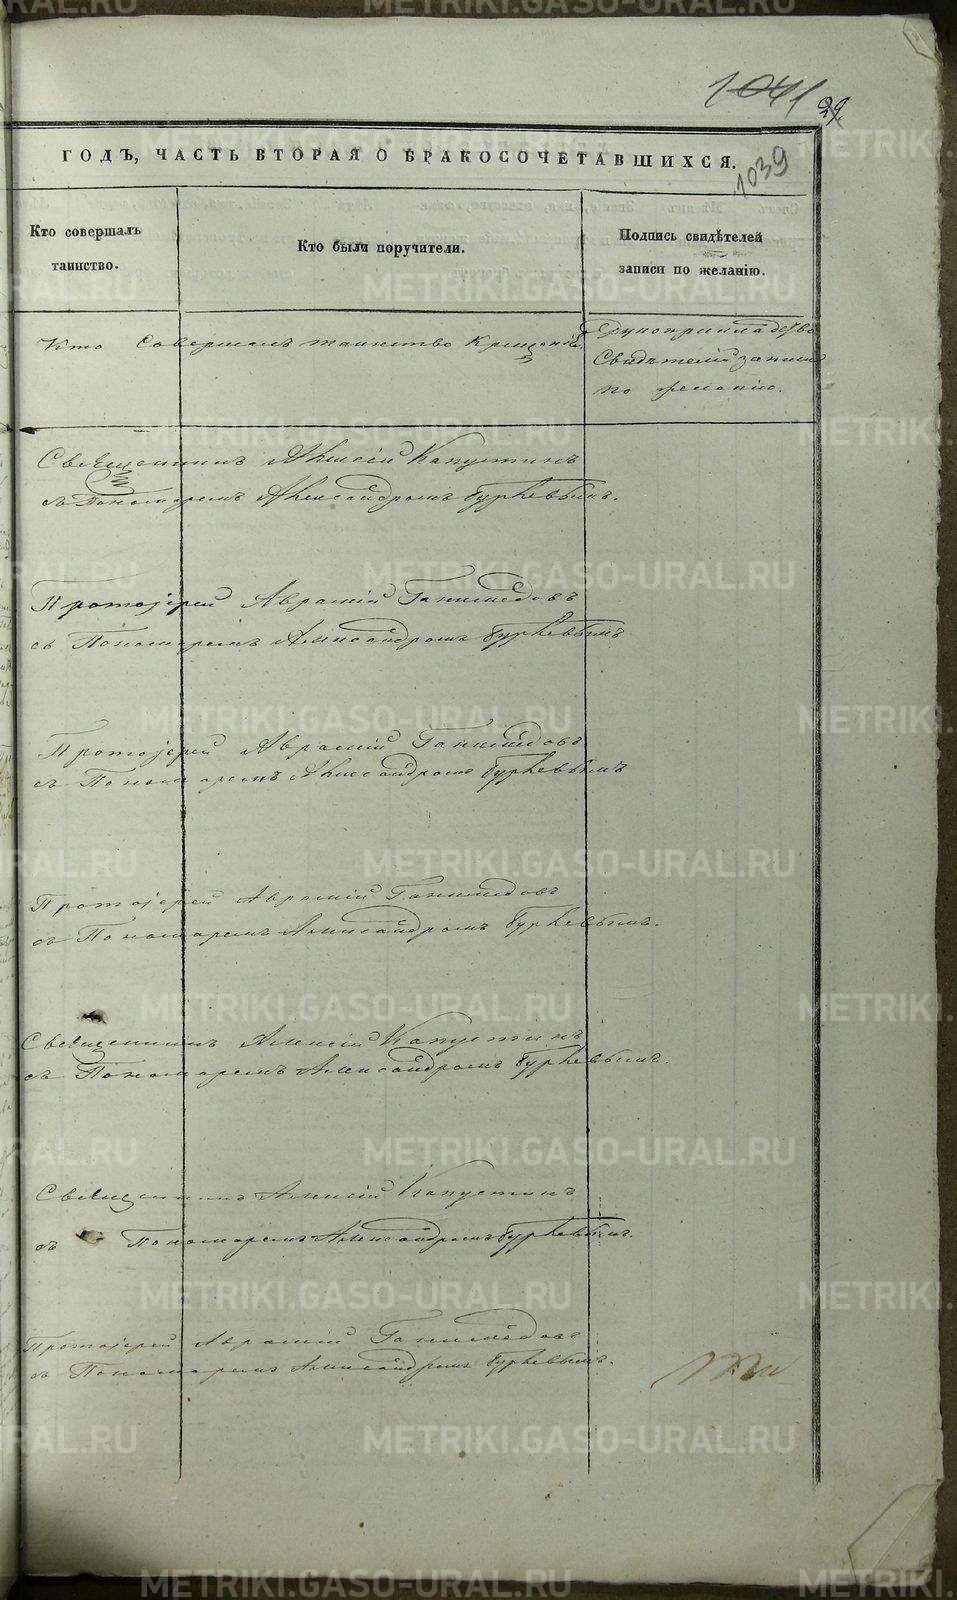 1041
29.
ГОДЪ, ЧАСТЬ ВТОРАЯ О БРАКОСОЧЕТАВШИХСЯ.
1039
Кто совершалъ
таинство.
Кто были поручители.
Подпись свидѣтелей
записи по желанію.
Кто Совершалъ таинство Крещенія.
Рукоприкладство
Свидѣтелей записи
по желанію.
Священникъ Алексій Капустинъ
съ Пономаремъ Александромъ
Протоіерей Аврамій Ганимедовъ
съ Пономаремъ Александромъ
Протоіерей Аврамій Ганимедовъ
съ Пономаремъ Александромъ
Протоіерей Аврамій Ганимедовъ
съ Пономаремъ Александромъ
Священникъ Алексій Капустинъ
съ Пономаремъ Александромъ
Священникъ Алексій Капустинъ
съ Пономаремъ Александромъ
Протоіерей Аврамій Ганимедовъ
съ Пономаремъ Александромъ
METRIKI.GASO-URAL.RU